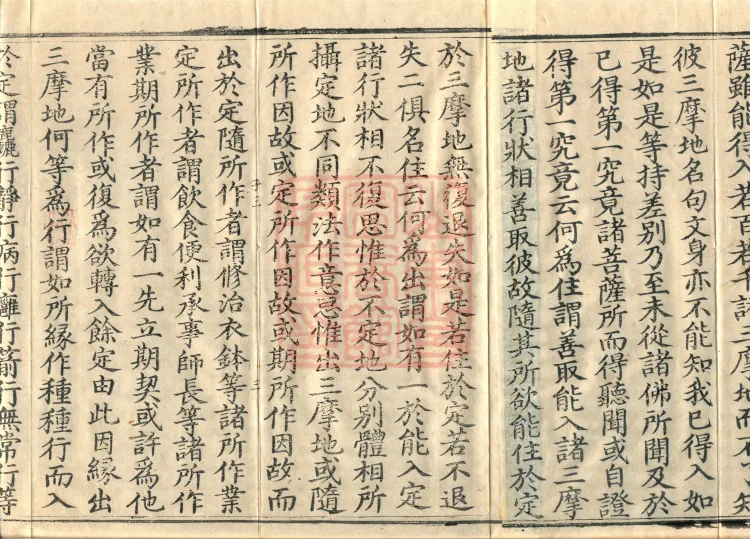 薩雖能得入若百若千諸三摩地而不知
彼三摩地名句文身亦不能知我已得入如
是如是等持差別乃至未從諸佛所聞及於
已得第一究竟諸菩薩所而得聽聞或自證
得第一究竟云何為住謂善取能入諸三摩
地諸行狀相善取彼故隨其所欲能住於定
於三摩地無復退失如是若住於定若不退
失二俱名住云何為出謂如有一於能入定
諸行狀相不復思惟於不定地分別體相所
攝定地不同類法作意思惟出三摩地或隨
所作因故或定所作因故或期所作因故而
出於定隨所作者謂修治衣鉢等諸所作業
定所作者謂飲食便利承事師長等諸所作
業期所作者謂如有一先立期契或許為他
當有所作或復為欲轉入餘定由此因緣出
三摩地何等為行謂如所緣作種種行而入
於定謂麤行靜行病行癰行箭行無常行等